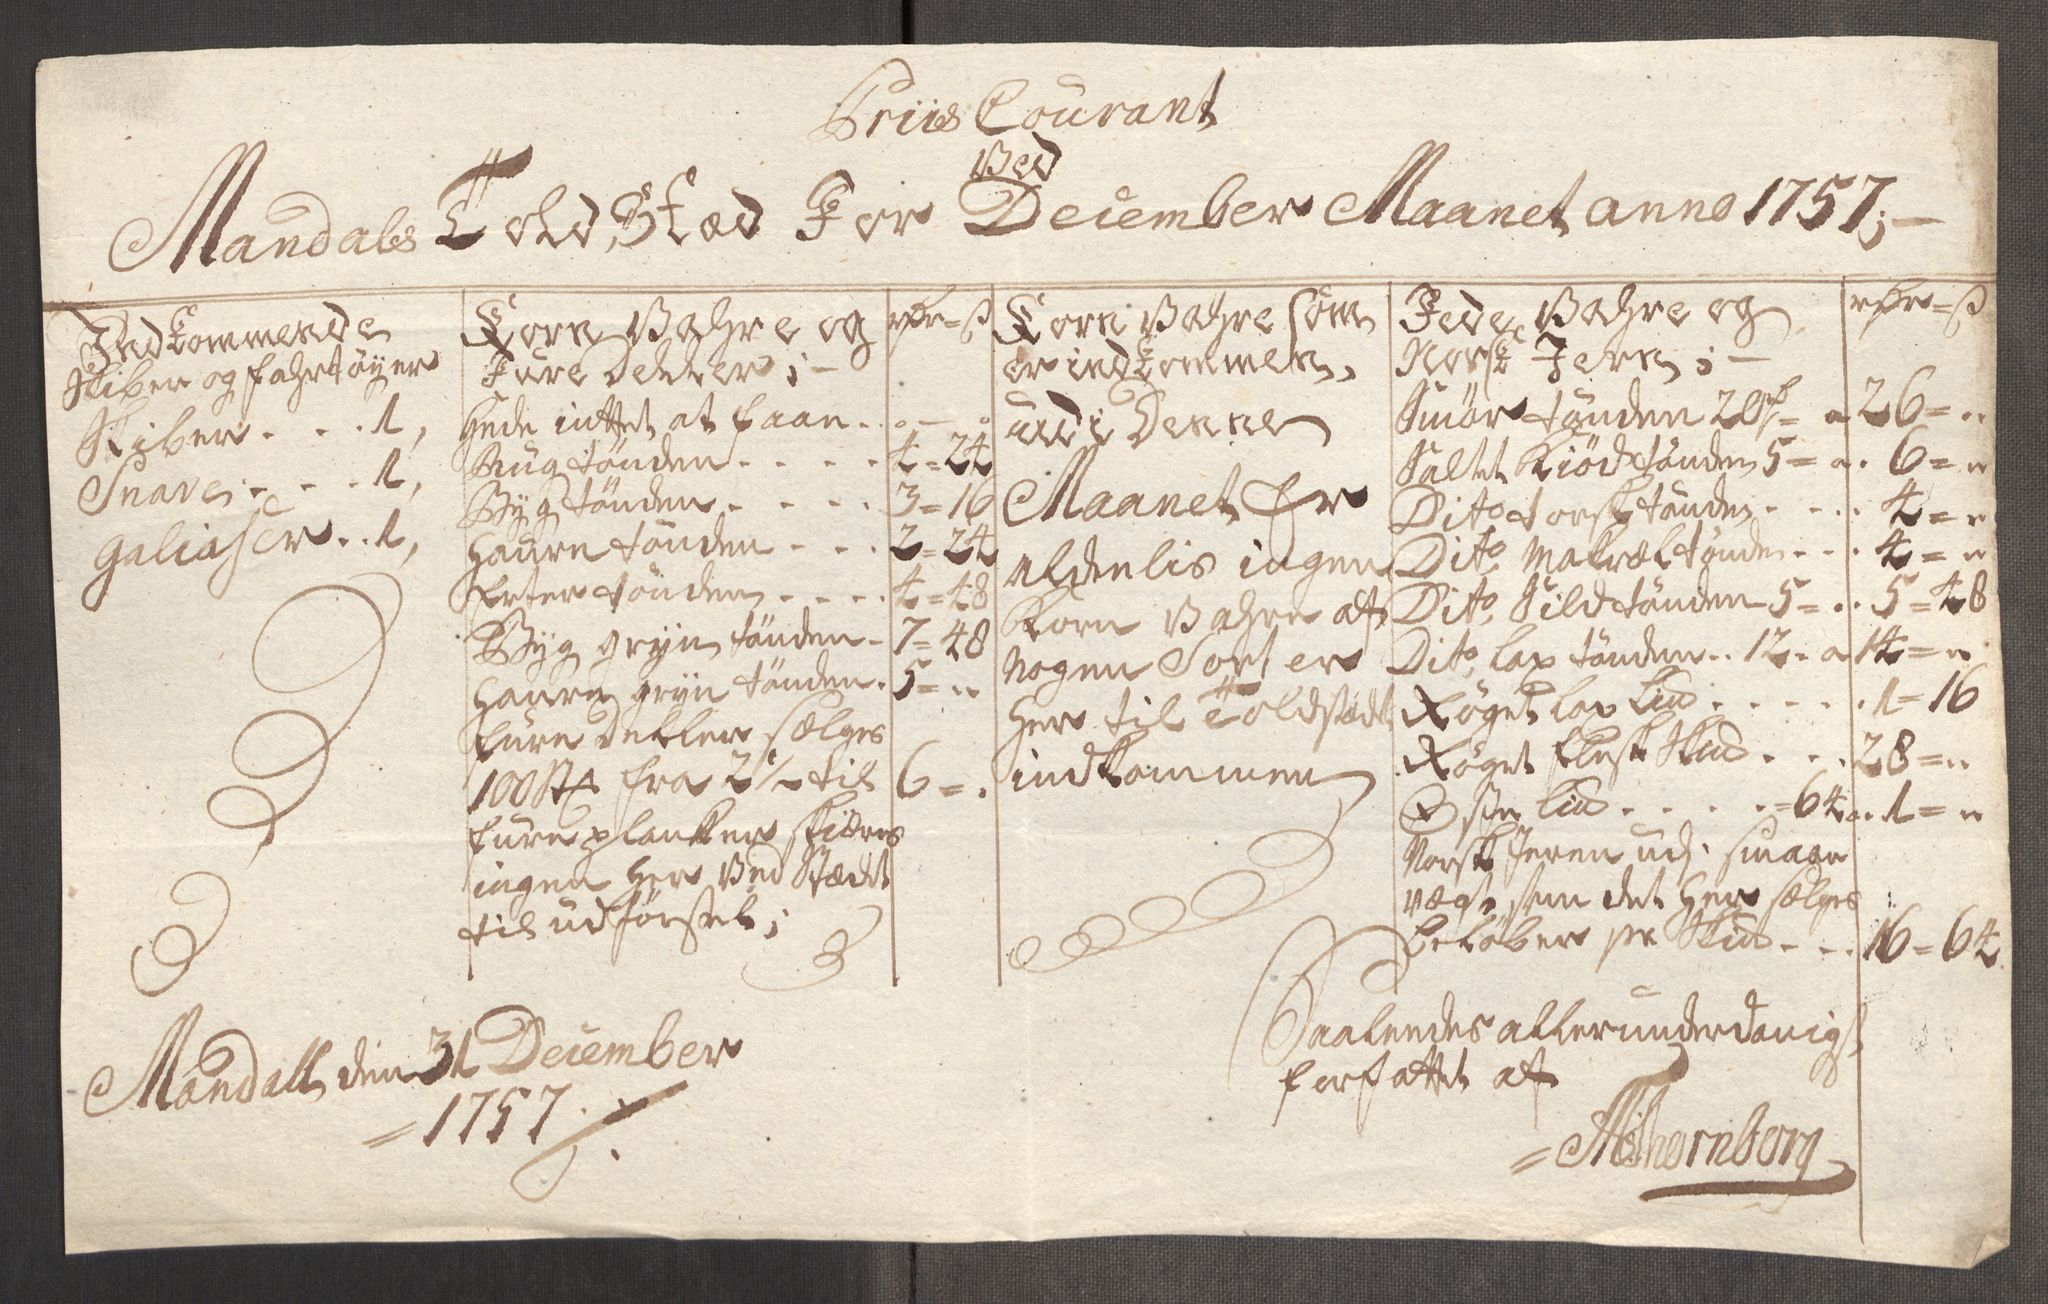 Priis Courant
Ved
Mandals Told Stæd For December Maanet anno 1757;
Indkommende
Skiber og fahrtøyer
Skiber . . . 1,
Snaver . . . 1,
galiaser . . 1,
Korn Vahre og
fure Deller ; rdr = ß
Hvede inttet at faae . . - .
Rug tønden . . . . 4 = 24
Byg tønden . . . . 3 = 16
Haure tønden . . . 2 = 24
Erter tønden . . . . 4 = 48
Byg gryn tønden . 7 = 48
Haure gryn tønden . 5 = "
fure Deller sælges
100 St fra 2 1/2 til 6 = .
fure plancker skiæres
ingen her Ved Stædet
til udførsel ;
Korn Vahre som
er indkommen,
udi Denne
Maanet Er
aldelis ingen
Korn Vahre af
Nogen Sort er
Her til Toldstædet
indkommen
Fede Vahre og
Norsk Jern ; rdr = ß
Smør tønden 20 = a 26 = "
Saltet Kiød tønden 5 = a . 6 = "
Dito torsk tønden . . . . 4 = "
Dito Makræl tønden . . . 4 = "
Dito Sild tønden 5 = . . 5 = 48
Dito lax tønden . . 12 . a 14 = "
Røget lax Lud . . . . . . 1 = 16
Røget flesk Skud . . . 28 = "
Oste Lud . . . . = 64 a . 1 = "
Norsk Jeren udi smaae
vægt som det Her sælges
beløber pr Skud . . . 16 = 64
Mandall den 31 December
= 1757
Saaleedes allerunderdanigst
forfattet af
= Thornborg